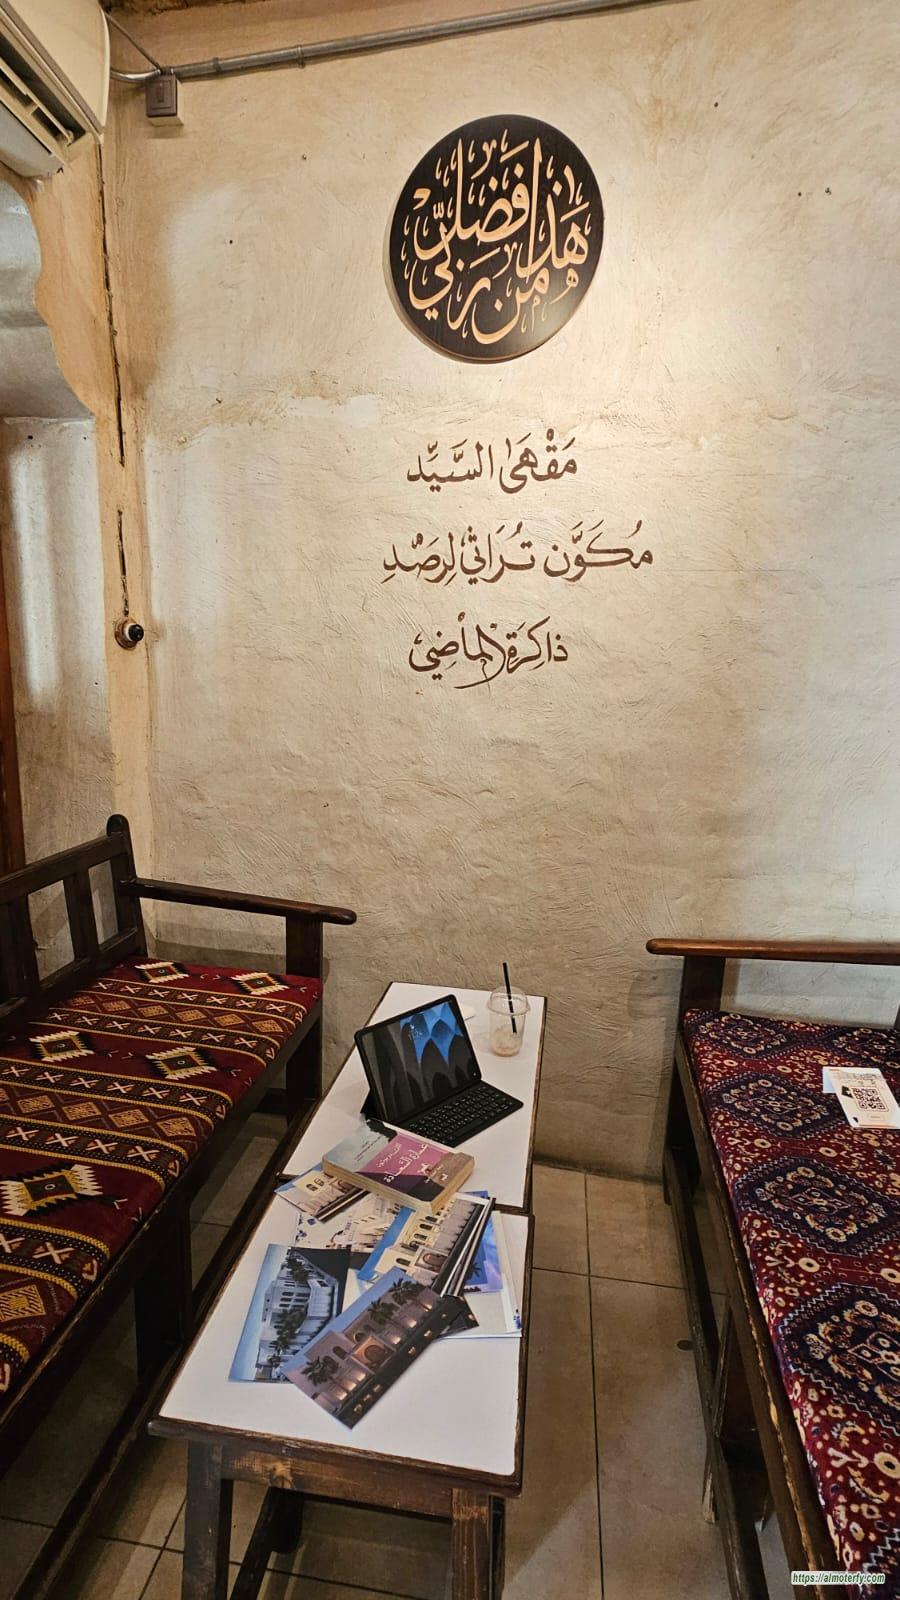 هَٰذَا مِن فَضْلِ رَبِّي
مَقْهَىٰ السَّيِّد
مُكَوَّن تُرَاثي لِرَصْدِ
ذاكِرَة الماضِي
عمارة السعادة
https://almoterfy.com